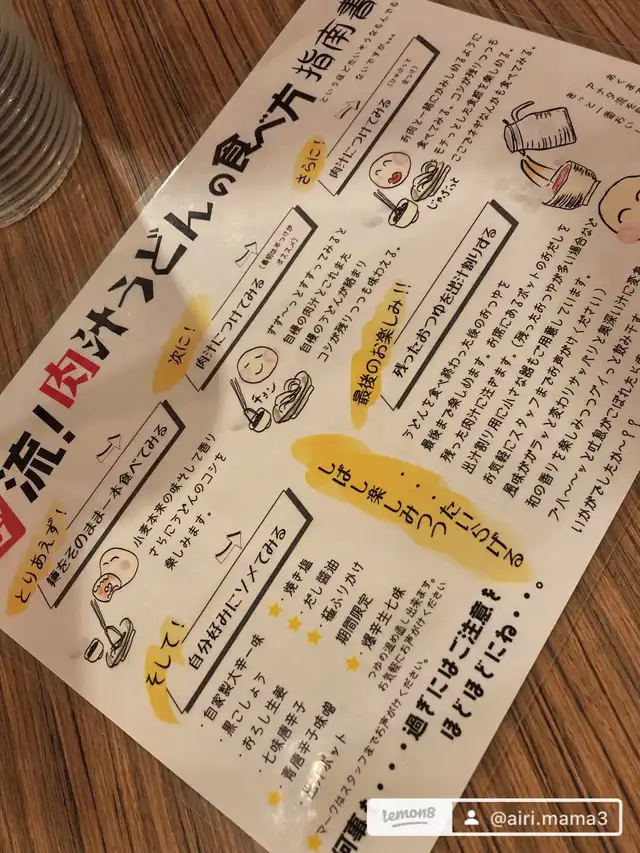 流!肉汁うどんの食べ方 指南書
という程どたいそうなもんでも
ないですが...
とりあえず!
麺をそのまま一本食べてみる
小麦本来の味そして香り
さらにうどんのコシを
楽しみます。
次に!
肉汁につけてみる
(最初は半つけが
オススメ)
すす〜っとすすってみると
自慢の肉汁とこれまた
自慢のうどんが絡まり
コシが残りつつも味わえる。
チョン
さらに!
肉汁につけてみる
(じゃぶっと
全つけ)
お肉と一緒にかみしめるように
食べてみる。コシが残りつつも
モチっとした食感を楽しめる。
ここでネギなんかも食べてみる。
じゃぶっと
そして!
自分好みにソメてみる
・自家製大辛一味
・黒こしょう
・おろし生姜
・七味唐辛子
・青唐辛子味噌
・出汁ポット
焼き塩
だし醤油
極ふりかけ
期間限定
・爆辛生七味
マークはスタッフまでお声がけください。
つゆの温め直し出来ます。
お気軽にお声がけください
最後のお楽しみ!!
残ったおつゆを出汁割りする
うどんを食べ終わった後のおつゆを
最後まで楽しめます。お席にあるポットのおだしを
残った肉汁に注ぎます。(残ったおつゆが多い場合など
出汁割り用に小さな器もご用意しています。
お気軽にスタッフまでお声がけください)
風味がガラッと変わりサッパリと奥深い汁に変
和の香りを楽しみつつグイっと飲み干す
プハ〜〜〜ッと吐息がこぼれた
いかがでしたか〜??
しばし楽しみつつ
・・・・たいらげる
何事も・・・・過ぎにはご注意を
ほどほどにね・・・。
lemon8
@airi.mama3